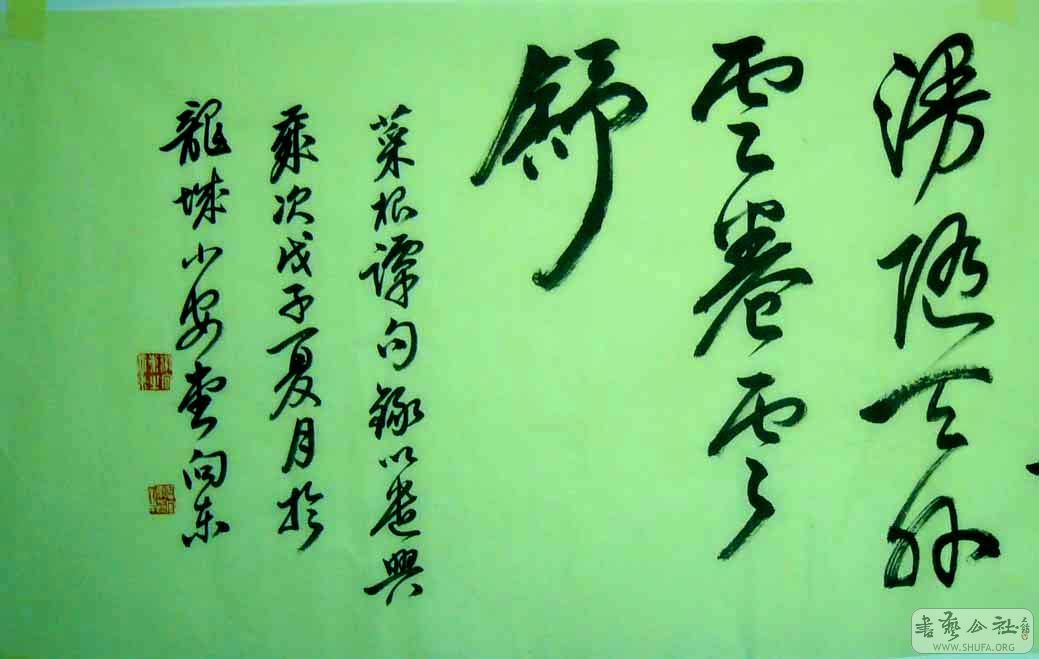 漫隨天外
雲卷雲
舒
菜根譚句錄以遣興
歲次戊子夏月於
龍城小安堂向东
書藝公社
WWW.SHUFA.ORG